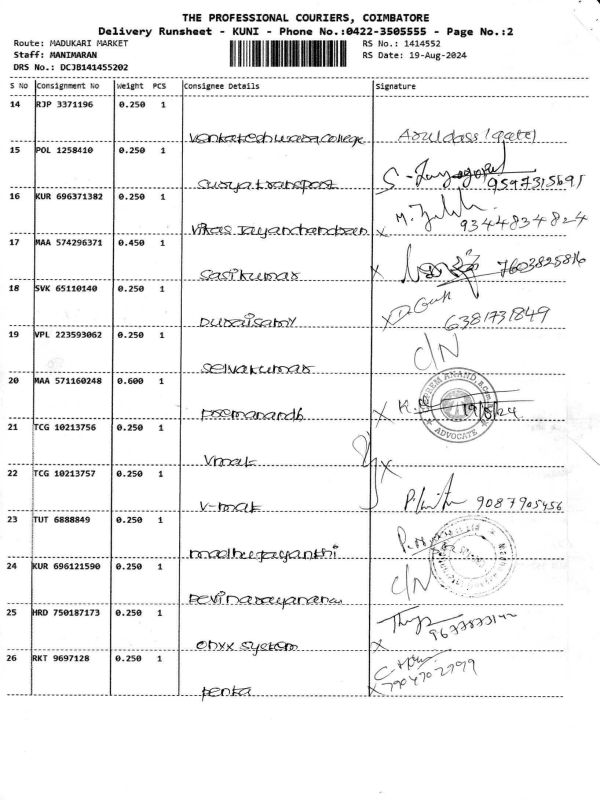 THE PROFESSIONAL COURIERS, COIMBATORE
Delivery Runsheet - KUNI - Phone No.:0422-3505555 - Page No.:2
Route: MADUKARI MARKET RS No.: 1414552
Staff: MANIMARAN RS Date: 19-Aug-2024
DRS No.: DCJB141455202
S No Consignment No Weight PCS Consignee Details Signature
14 RJP 3371196 0.250 1
Venkateshwara college Aruldass (gate)
15 POL 1258410 0.250 1
Surya transport 9597315695
16 KUR 696371382 0.250 1
Vikas Jayanchandran x 9344834824
17 MAA 574296371 0.450 1
Sasikumar x 7603825816
18 SVK 65110140 0.250 1
Duraisamy x 6381731849
19 VPL 223593062 0.250 1
Selvakumar C/N
20 MAA 571160248 0.600 1
premanandh x 19/8/24
PREM ANAND, B.Com
ADVOCATE
21 TCG 10213756 0.250 1
Vmak x
22 TCG 10213757 0.250 1
V-mak 9087905456
23 TUT 6888849 0.250 1
madhujayanthi
24 KUR 696121590 0.250 1
Devinarayanan C/N
25 HRD 750187173 0.250 1
Onyx system x
26 RKT 9697128 0.250 1
penta x 7904702799